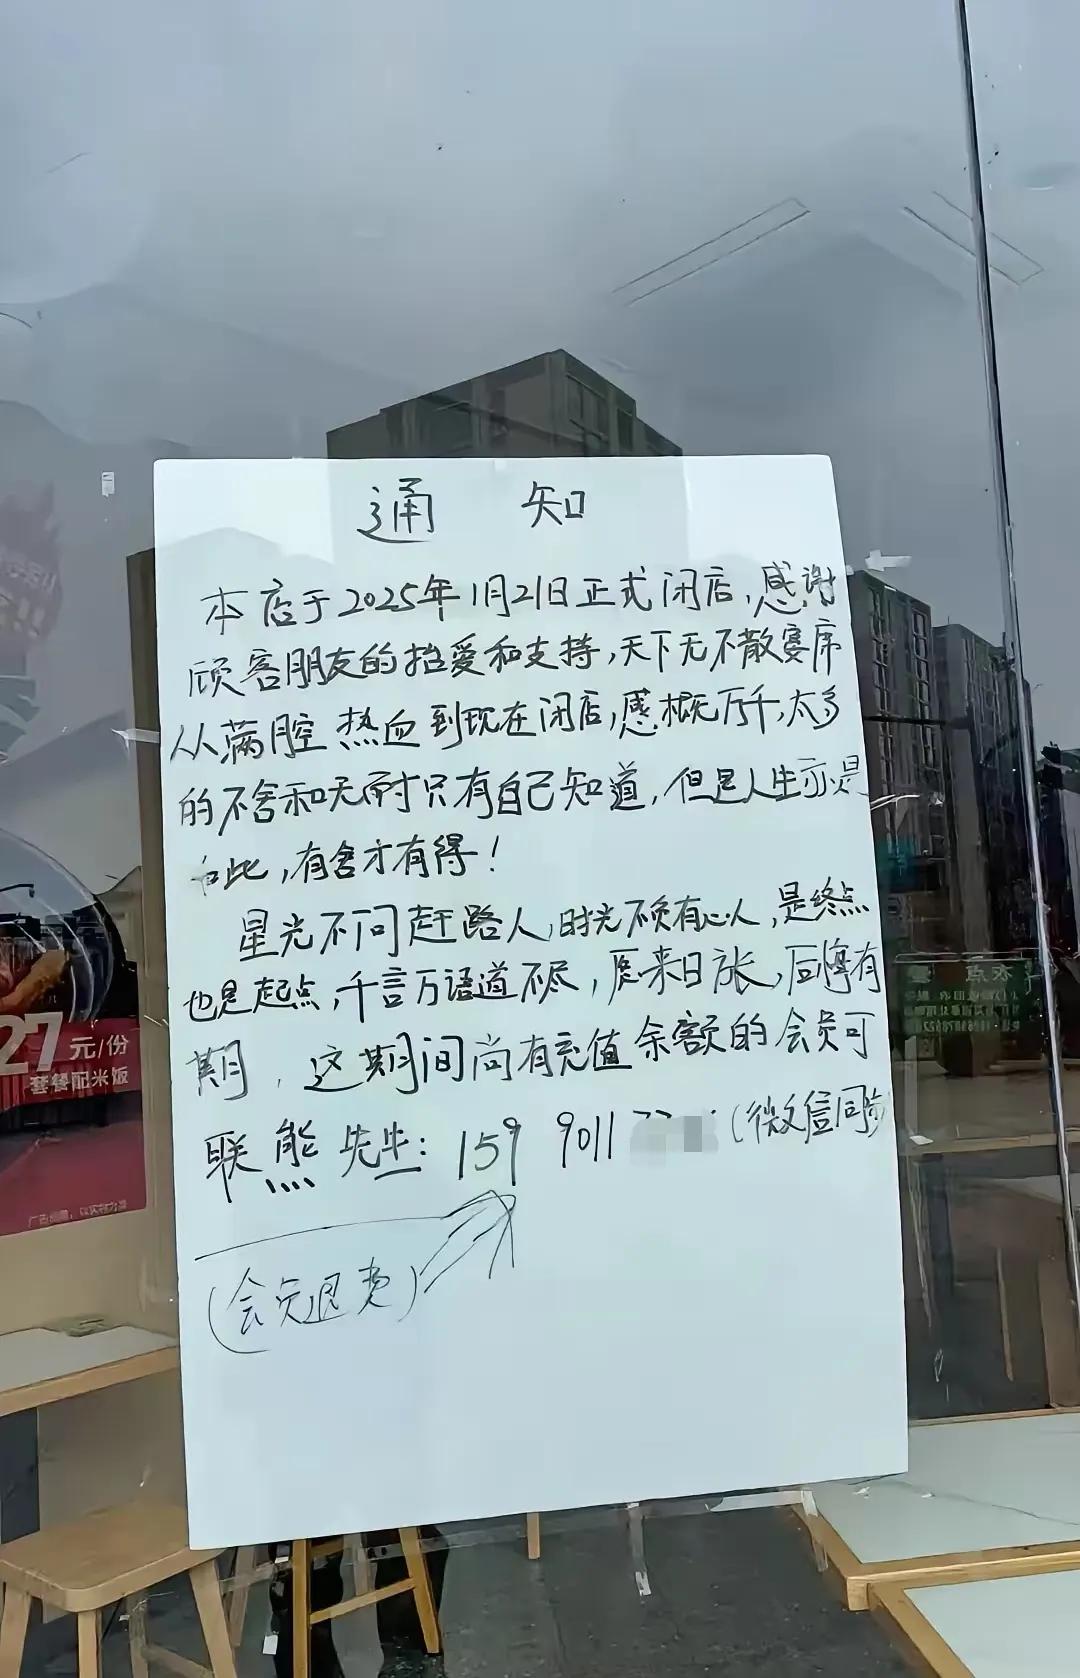 通 知
本店于2025年1月21日正式闭店,感谢
顾客朋友的抬爱和支持,天下无不散宴席
从满腔热血到现在闭店,感概万千,太多
的不舍和无耐只有自己知道,但是人生亦是
如此,有舍才有得!
星光不问赶路人,时光不负有心人,是终点
也是起点,千言万语道不尽,愿来日方长,后悔有
期,这期间尚有充值余额的会员可
联熊先生:159 9011 (微信同步)
(会员退费)
27元/份
套餐配米饭